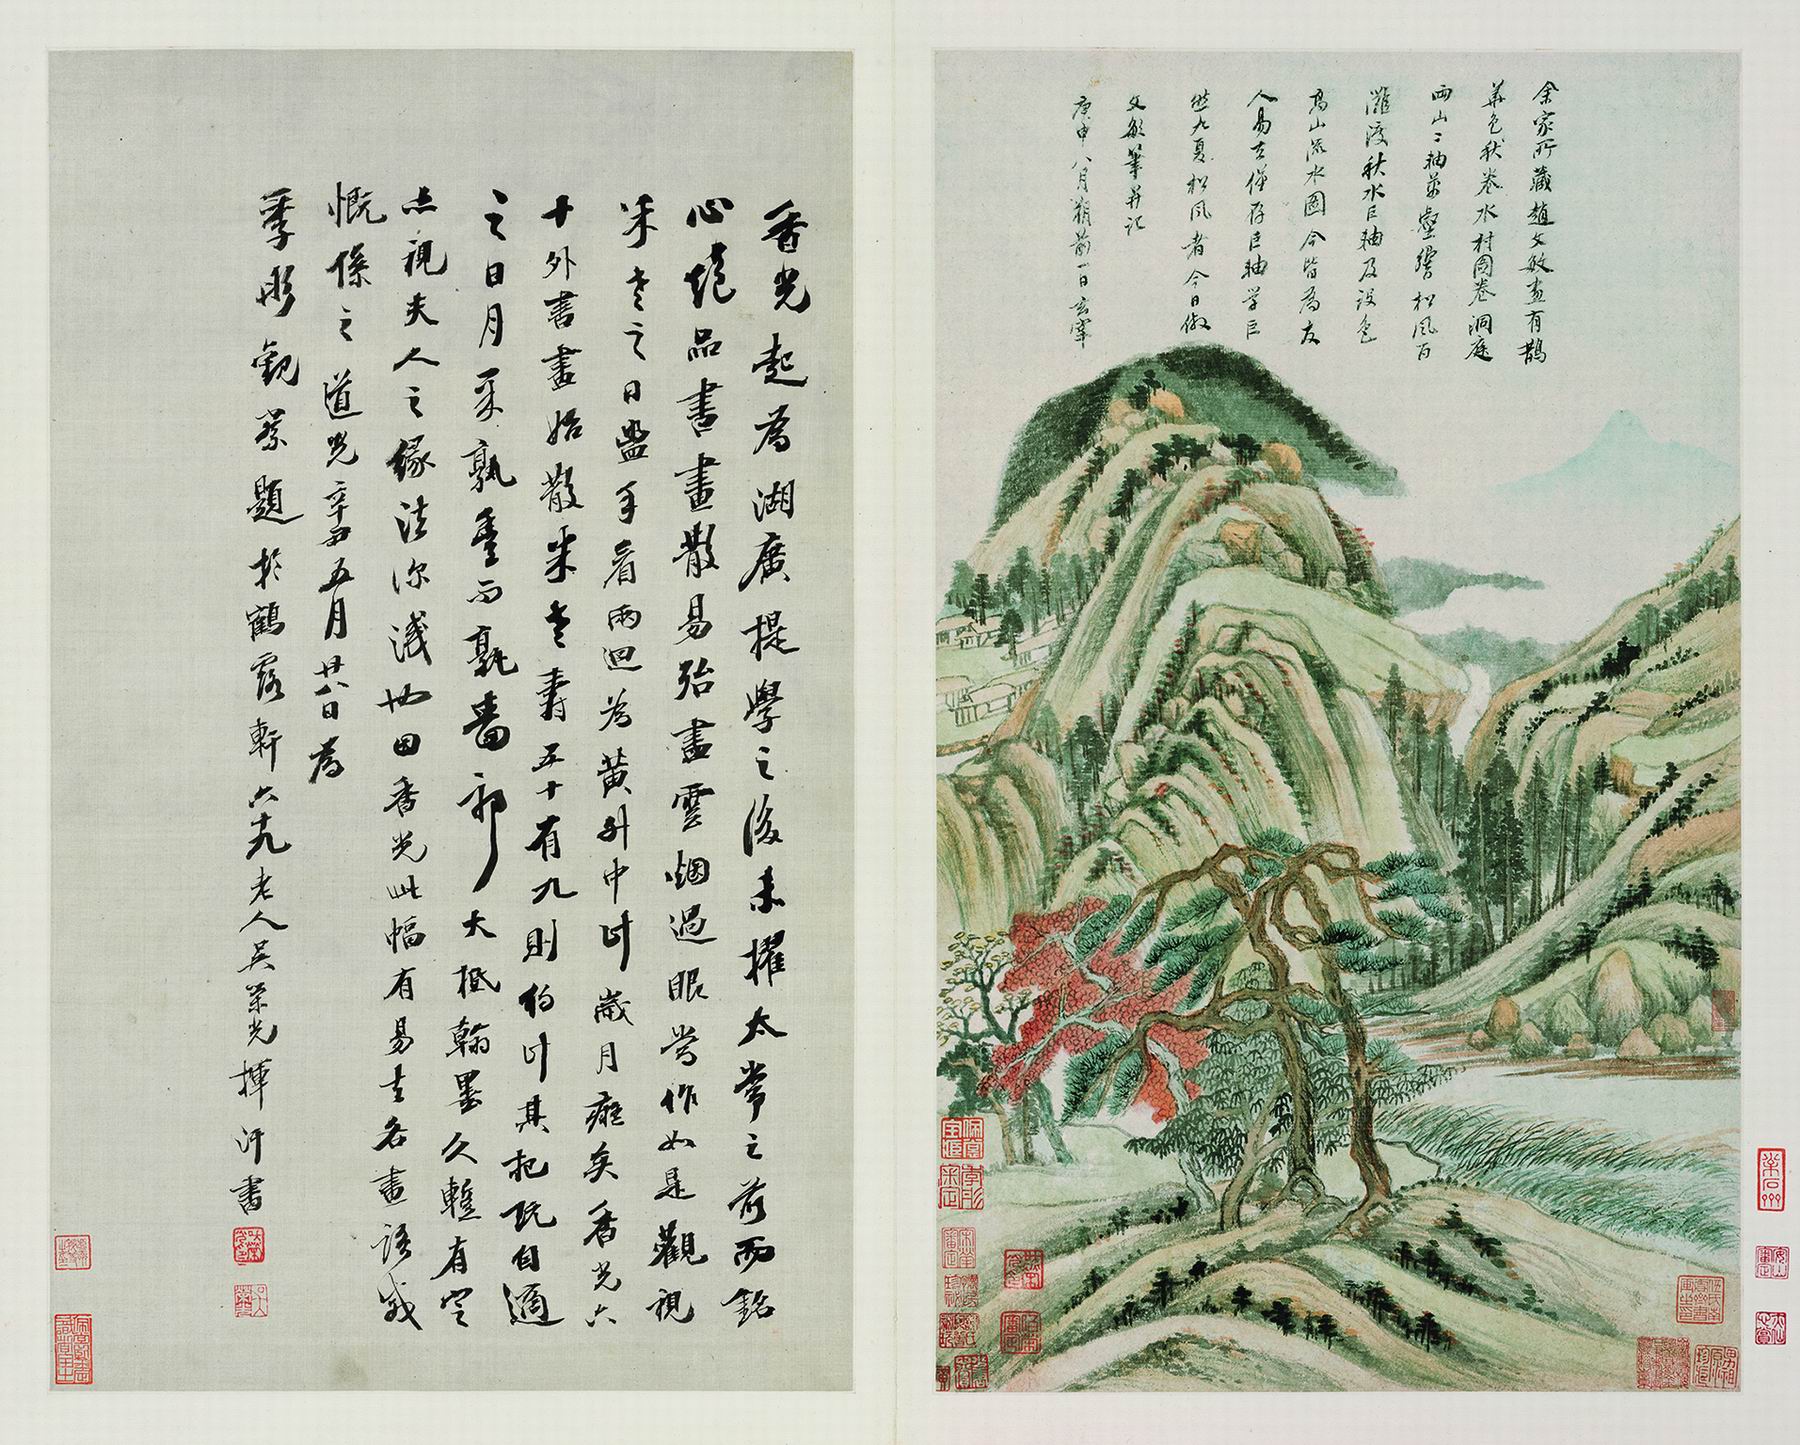 余家所藏趙文敏畫有鵲
華色秋卷水村圖卷洞庭
兩山二軸萬壑響松風百
灘渡秋水巨軸及設色
高山流水圖今皆為友
人易去僅存巨軸學巨
然九夏松風者今日倣
文敏筆并記
庚申八月朔前一日玄宰
香光起為湖廣提學之後未擢太常之前而銘
心絕品書畫散易殆盡雲烟過眼嘗作如是觀視
米老之日盥手看兩迴為黃州中计歲月痴矣香光六
十外書畫始散米老壽五十有九則約计其把玩自適
之日月孰豐而孰嗇耶大抵翰墨久輒有空
点視夫人之緣法深淺也因香光此幅有易去名畫語感
慨係之道光辛丑五月廿八日為
季彤觀察題於鶴露軒六十九老人吳榮光揮汗書